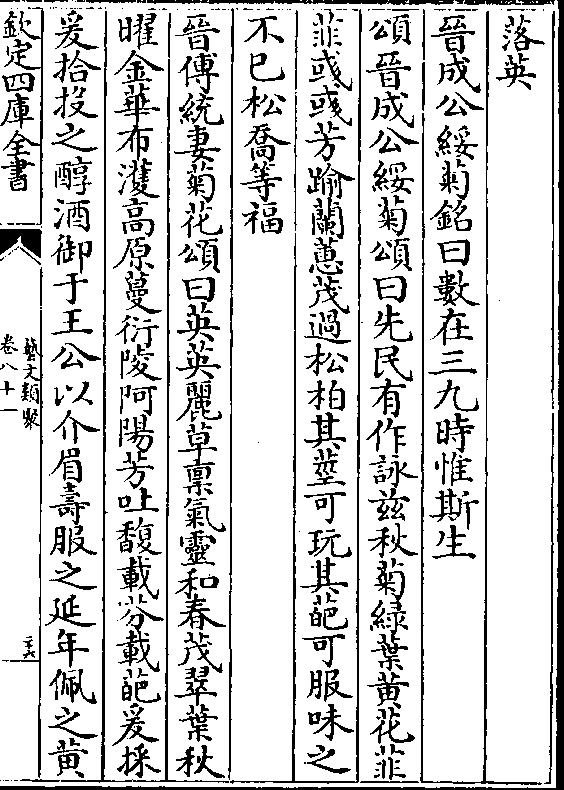 落英
晉成公綏菊銘曰數在三九時惟斯生
頌晉成公綏菊頌曰先民有作詠茲秋菊緑葉黄花菲
菲彧彧芳踰蘭蕙茂過松柏其莖可玩其葩可服味之
不已松喬等福
晉傅統妻菊花頌曰英英麗草禀氣靈和春茂翠葉秋
曜金華布濩高原蔓衍陵阿陽芳吐馥載芬載葩爰採
爰拾投之醇酒御于王公以介眉壽服之延年佩之黄
欽定四庫全書
藝文類聚
卷八十一